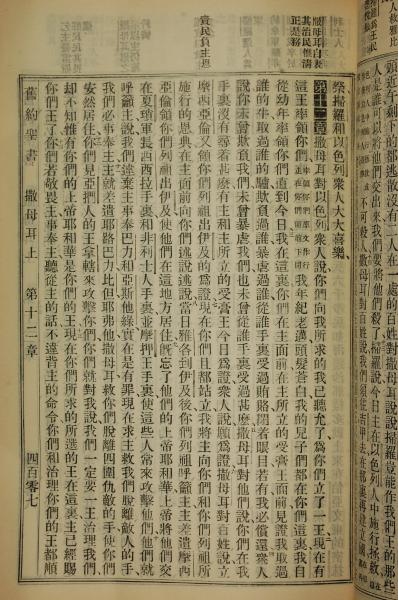 人是誰可以將他們交出來我們要將他們殺了掃羅說今日主在以色列人中施行拯救
撒母耳自表
其治民惟清
正是務
言民負主恩
祭掃羅和以色列衆人大大喜樂
第十二章撒母耳對以色列衆人說你們向我所求的我已聽允了爲你們立了一王現在有
這王率領你們我年紀老邁頭髮蒼白我的兒子們都在你們這裏我自
從幼年率領你們直到今日我在這裏你們在主面前在主所立的受膏王面前見證我取過
誰的牛取過誰的驢欺負過誰暴虐過誰從誰手裏受過賄賂閉着眼目若有我必償還衆人
說你未曾欺負我們未曾暴虐我們也未曾從誰手裏受過甚麼撒母耳對他們說你們在我
手裏沒有尋着甚麼有主和主所立的受膏王今日爲證衆人說願爲證撒母耳對百姓說立
摩西亞倫又領你們列祖出伊及的爲證現在你們且都站立我將主向你們和你們列祖所
施行的恩典在主面前向你們述說述說當日雅各到伊及後你們列祖呼籲主主差遣摩西
亞倫領你們列祖出伊及使他們在這地方居住旣忘了他們的上帝耶和華上帝將他們交
在夏瑣軍長西西拉手裏和非利士人手裏並摩押王手裏使這些人常來攻擊他們他們就
呼籲主說我們違棄主事奉巴力和亞斯他綠實在是有罪現在求主救我們脫離敵人的手
我們必事奉主主就差遣耶路巴力比但耶弗他撒母耳救你們脫離四圍仇敵的手使你們
安然居住你們見亞捫人的王拿轄來攻擊你們你們就對我說我們一定要一王治理我們
却不知雖有你們的上帝耶和華是你們的王現在你們所求的所選的王在這裏主已經賜
你們王了你們若敬畏主事奉主聽從主的話不違背主的命令你們和治理你們的王都順
舊約聖書 撒母耳上 第十二章 四百零七